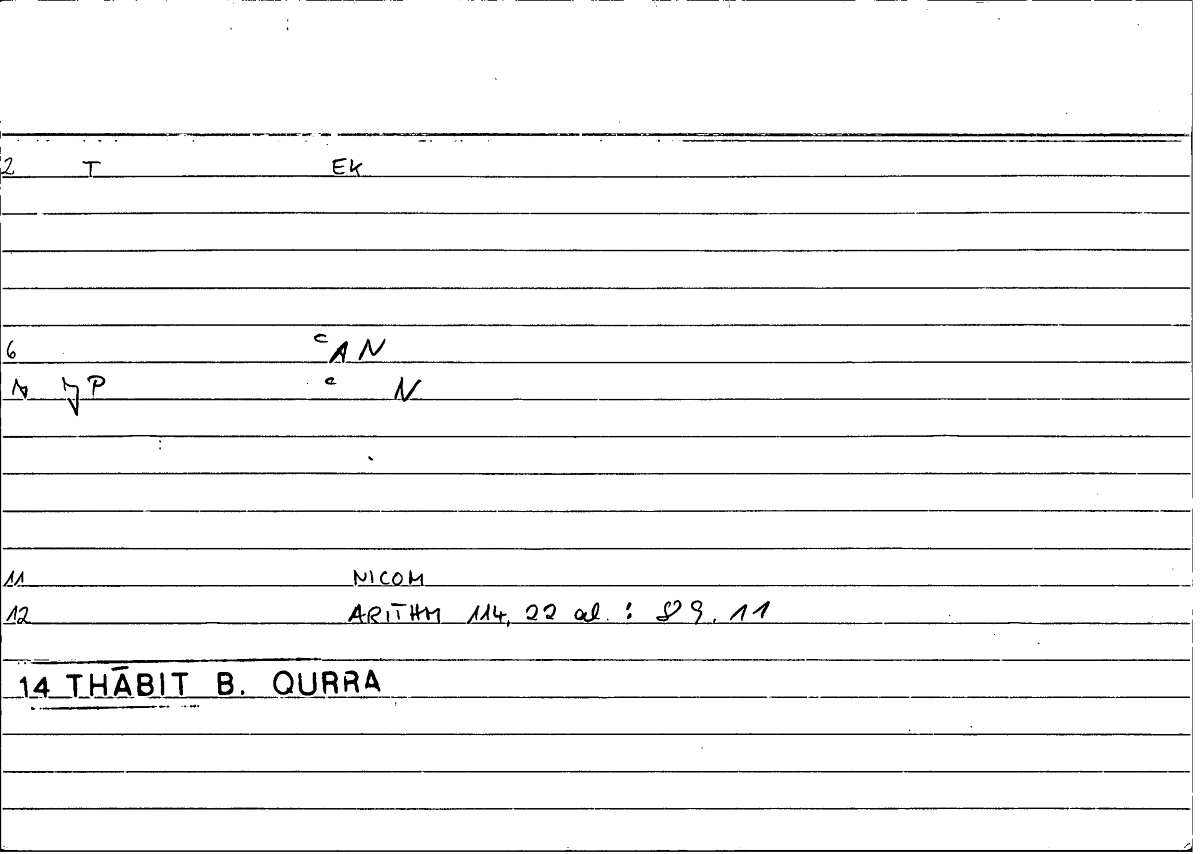 2 T EK
6 ᶜAN
P ᶜ N
11 NICOM
12 ARITHM 114, 22 al. : 89. 11
14 THĀBIT B. QURRA